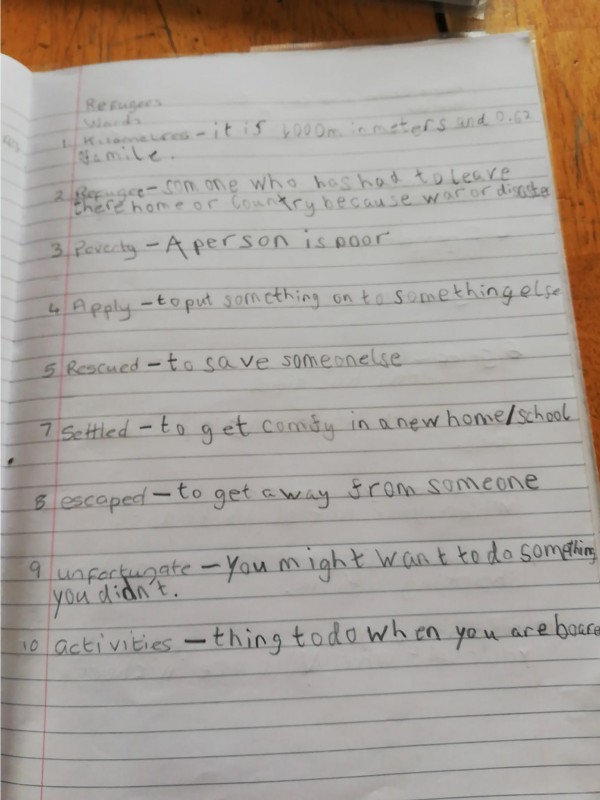 Refugees
Words
1. Kilometres - it is 1000m in meters and 0.62
of a mile.
2 Refugee - som one who has had to leave
there home or Country because war or disaster
3 Poverty - A person is poor
4 Apply - to put something on to something else
5 Rescued - to save someonelse
7 Settled - to get comfy in a new home/school
8 escaped - to get away from someone
9 unfortunate - you might want to do something
you didn't.
10 activities - thing to do when you are board